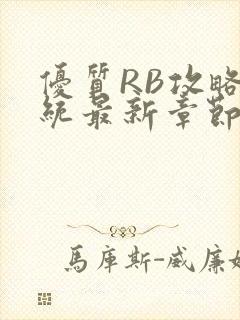 優質RB攻略
統最新章節
馬庫斯-威廉